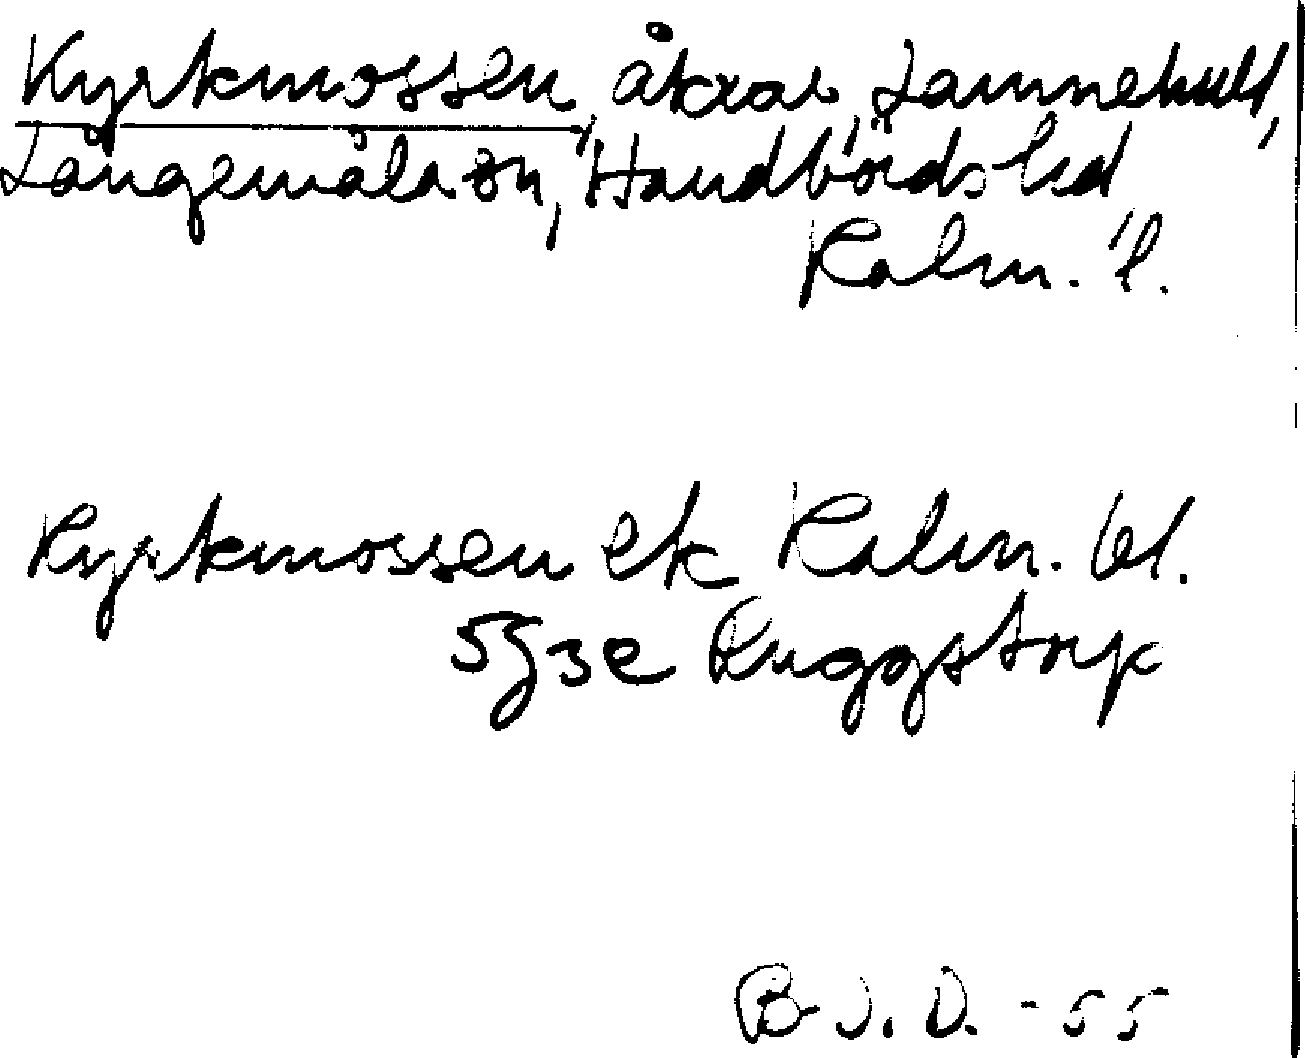 Kyrkmossen, åkrar, Lannekulb,
Långemåla sn, Handbörds hd
Kalm. l.
Kyrkmossen ek Kalm. bl.
5g3e Ruggstorp
B. J. D. -55